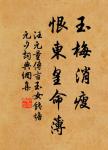 玉梅消瘦
恨東皇命薄
汪元量傳言玉女錢塘
元夕詞典網集